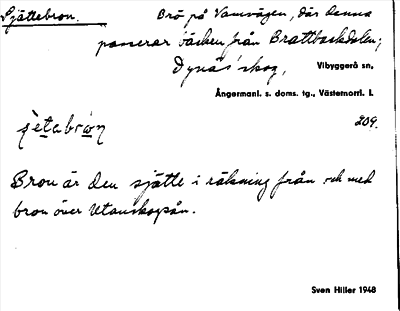 Sjättebron. Bro på Vamvägen, där denna
passerar bäcken från Brattbäcksdalen;
Dynäs' skog, Vibyggerå sn,
Ångermanl. s. doms. tg., Västernorrl. l.
209.
Bron är den sjätte i räkning från och med
bron över Utanskogsån.
Sven Hiller 1948